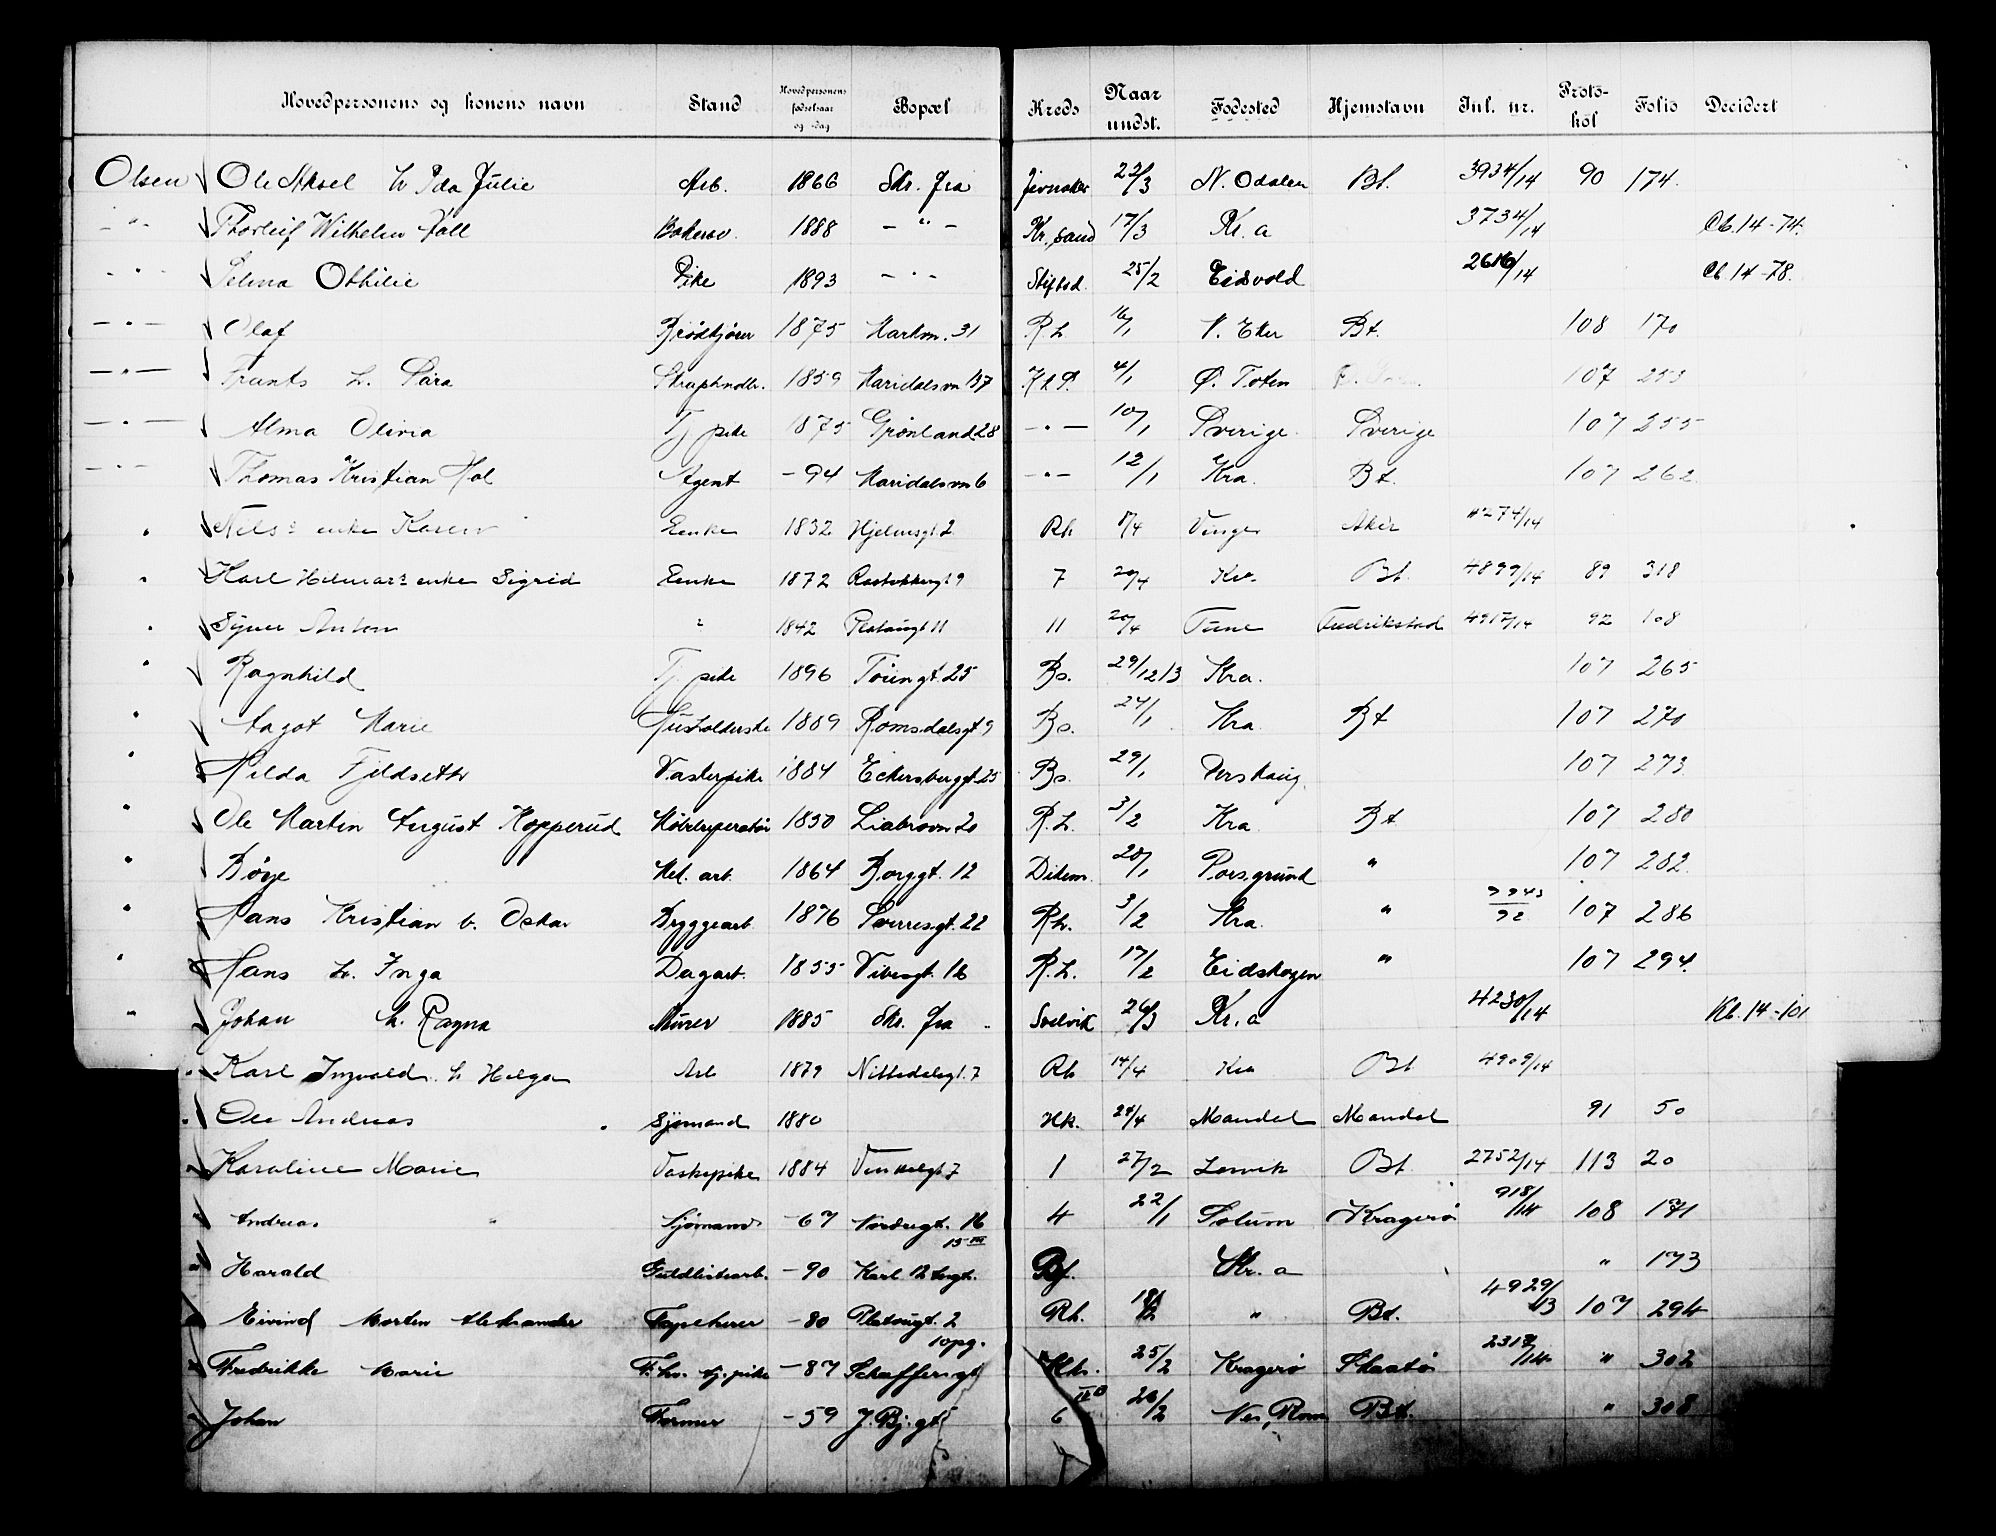 Hovedpersonens og konens navn Stand Hovedpersonens fødselsaar og -dag Bopæl Kreds Naar undst. Fødested Hjemstavn Inl. nr. Proto-kol Folio Decidert
Olsen Ole Aksel h Ida Julie Arb. 1866 Skr. fra Jevnaker 22/3 N. Odalen Bt. 3934/14 90 174.
- " - Thorleif Wilhelm Fall Bakersv. 1888 - " - Kr.sand 17/3 Kr.a 3734/14 Cb. 14-74.
- " - Selma Othilie Pike 1893 - " - Stiftsd. 25/2 Eidsvold 2616/14 Cb. 14-78.
- " - Olaf Brødkjører 1875 Markvn. 31 R.h. 16/1 N. Eker Bt. 108 170
- " - Frants h. Sara Skraphndlr. 1859 Maridalsvn 137 4/1 Ø. Toten 107 253
- " - Alma Olivia Tj pike 1875 Grønland 28 - " - 10/1 Sverige. Sverige 107 255
- " - Thomas Kristian Hol Agent -94 Maridalsvn 6 - " - 12/1 Kra. Bt. 107 262
" Nels's enke Karen Eenke 1832 Hjelmsgt. 2 Rh 8/4 Vinger Aker 4274/14
" Karl Hilmar's enke Sigrid Eenke 1872 Rostokkergt 9 7 20/4 Kra Bt. 4899/14 89 318
" Syver Anton " 1842 Platougt 11 11 20/4 Tune Fredrikstad 4917/14 92 108
" Ragnhild Tj. pike 1896 Tøiengt. 25 Bs. 29/12 13 Kra. 107 265
" Aagot Marie Husholderske 1889 Romsdalsgt 9 Bs. 24/1 Kra Bt 107 270
" Hilda Fjeldseth Vaskepike 1884 Eckersbergt. 25 Bs. 29/1 Værskaug. 107 273
" Ole Martin August Kopperud 1850 Liabrovn 20 R.h. 3/2 Kra. Bt 107 280
" Børge Mek. arb. 1864 Borggt. 12 Dikem. 28/1 Porsgrund " 107 282.
" Hans Kristian v. Oskar Bryggearb. 1876 Sverresgt. 22 Rh. 3/2 Kra. " 107 286
" Hans h. Inga Dagarb. 1855 Vibesgt. 16 R.h. 17/2 Eidskogen " 107 294.
" Johan h. Ragna Murer 1885 Skr. fra Svelvik 26/3 Kr.a 4230/14 Kb. 14-101
" Karl Ingvald h Helga Arb 1879 Nittedalsgt. 7 Rh 14/4 Kra Bt 4909/14
" Ole Andreas Sjømand 1880 Hk. 24/4 Mandal Mandal 91 50
" Karoline Marie Vaskepike 1884 Vinkelgt 7 1 27/2 Larvik Bt 2752/14 113 20
" Andreas Sjømand -67 Nordregt. 16 4 22/1 Solum Kragerø 918/14 108 171
" Harald Guldlistearb. -90 Karl 12 tesgt. 15 III Bf. Kr.a " 173
" Eivind Morten Aleksander Tapetserer -80 Platougt. 2 Rh. " Bt. 4929/13 107 294
" Fredrikke Marie F.hv. tj.pike -87 Schæffersgt 10 pg. Hk. 25/2 Kragerø Skaatø " 302
" Johan Former -59 J. Bj. gt 6 26/2 Nes, Rom Bt. " 308